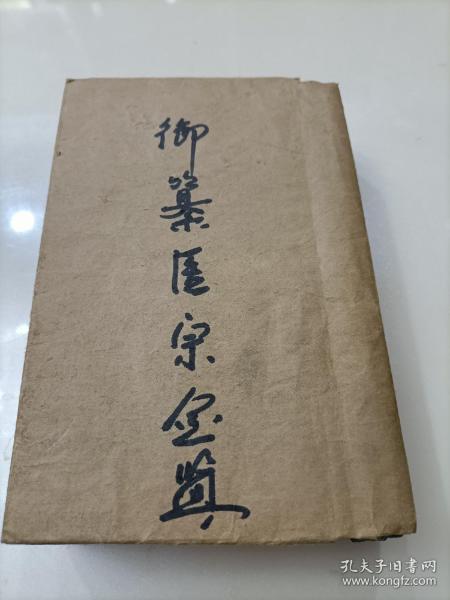 御纂医宗金鉴
孔夫子旧书网
www.kongfz.com